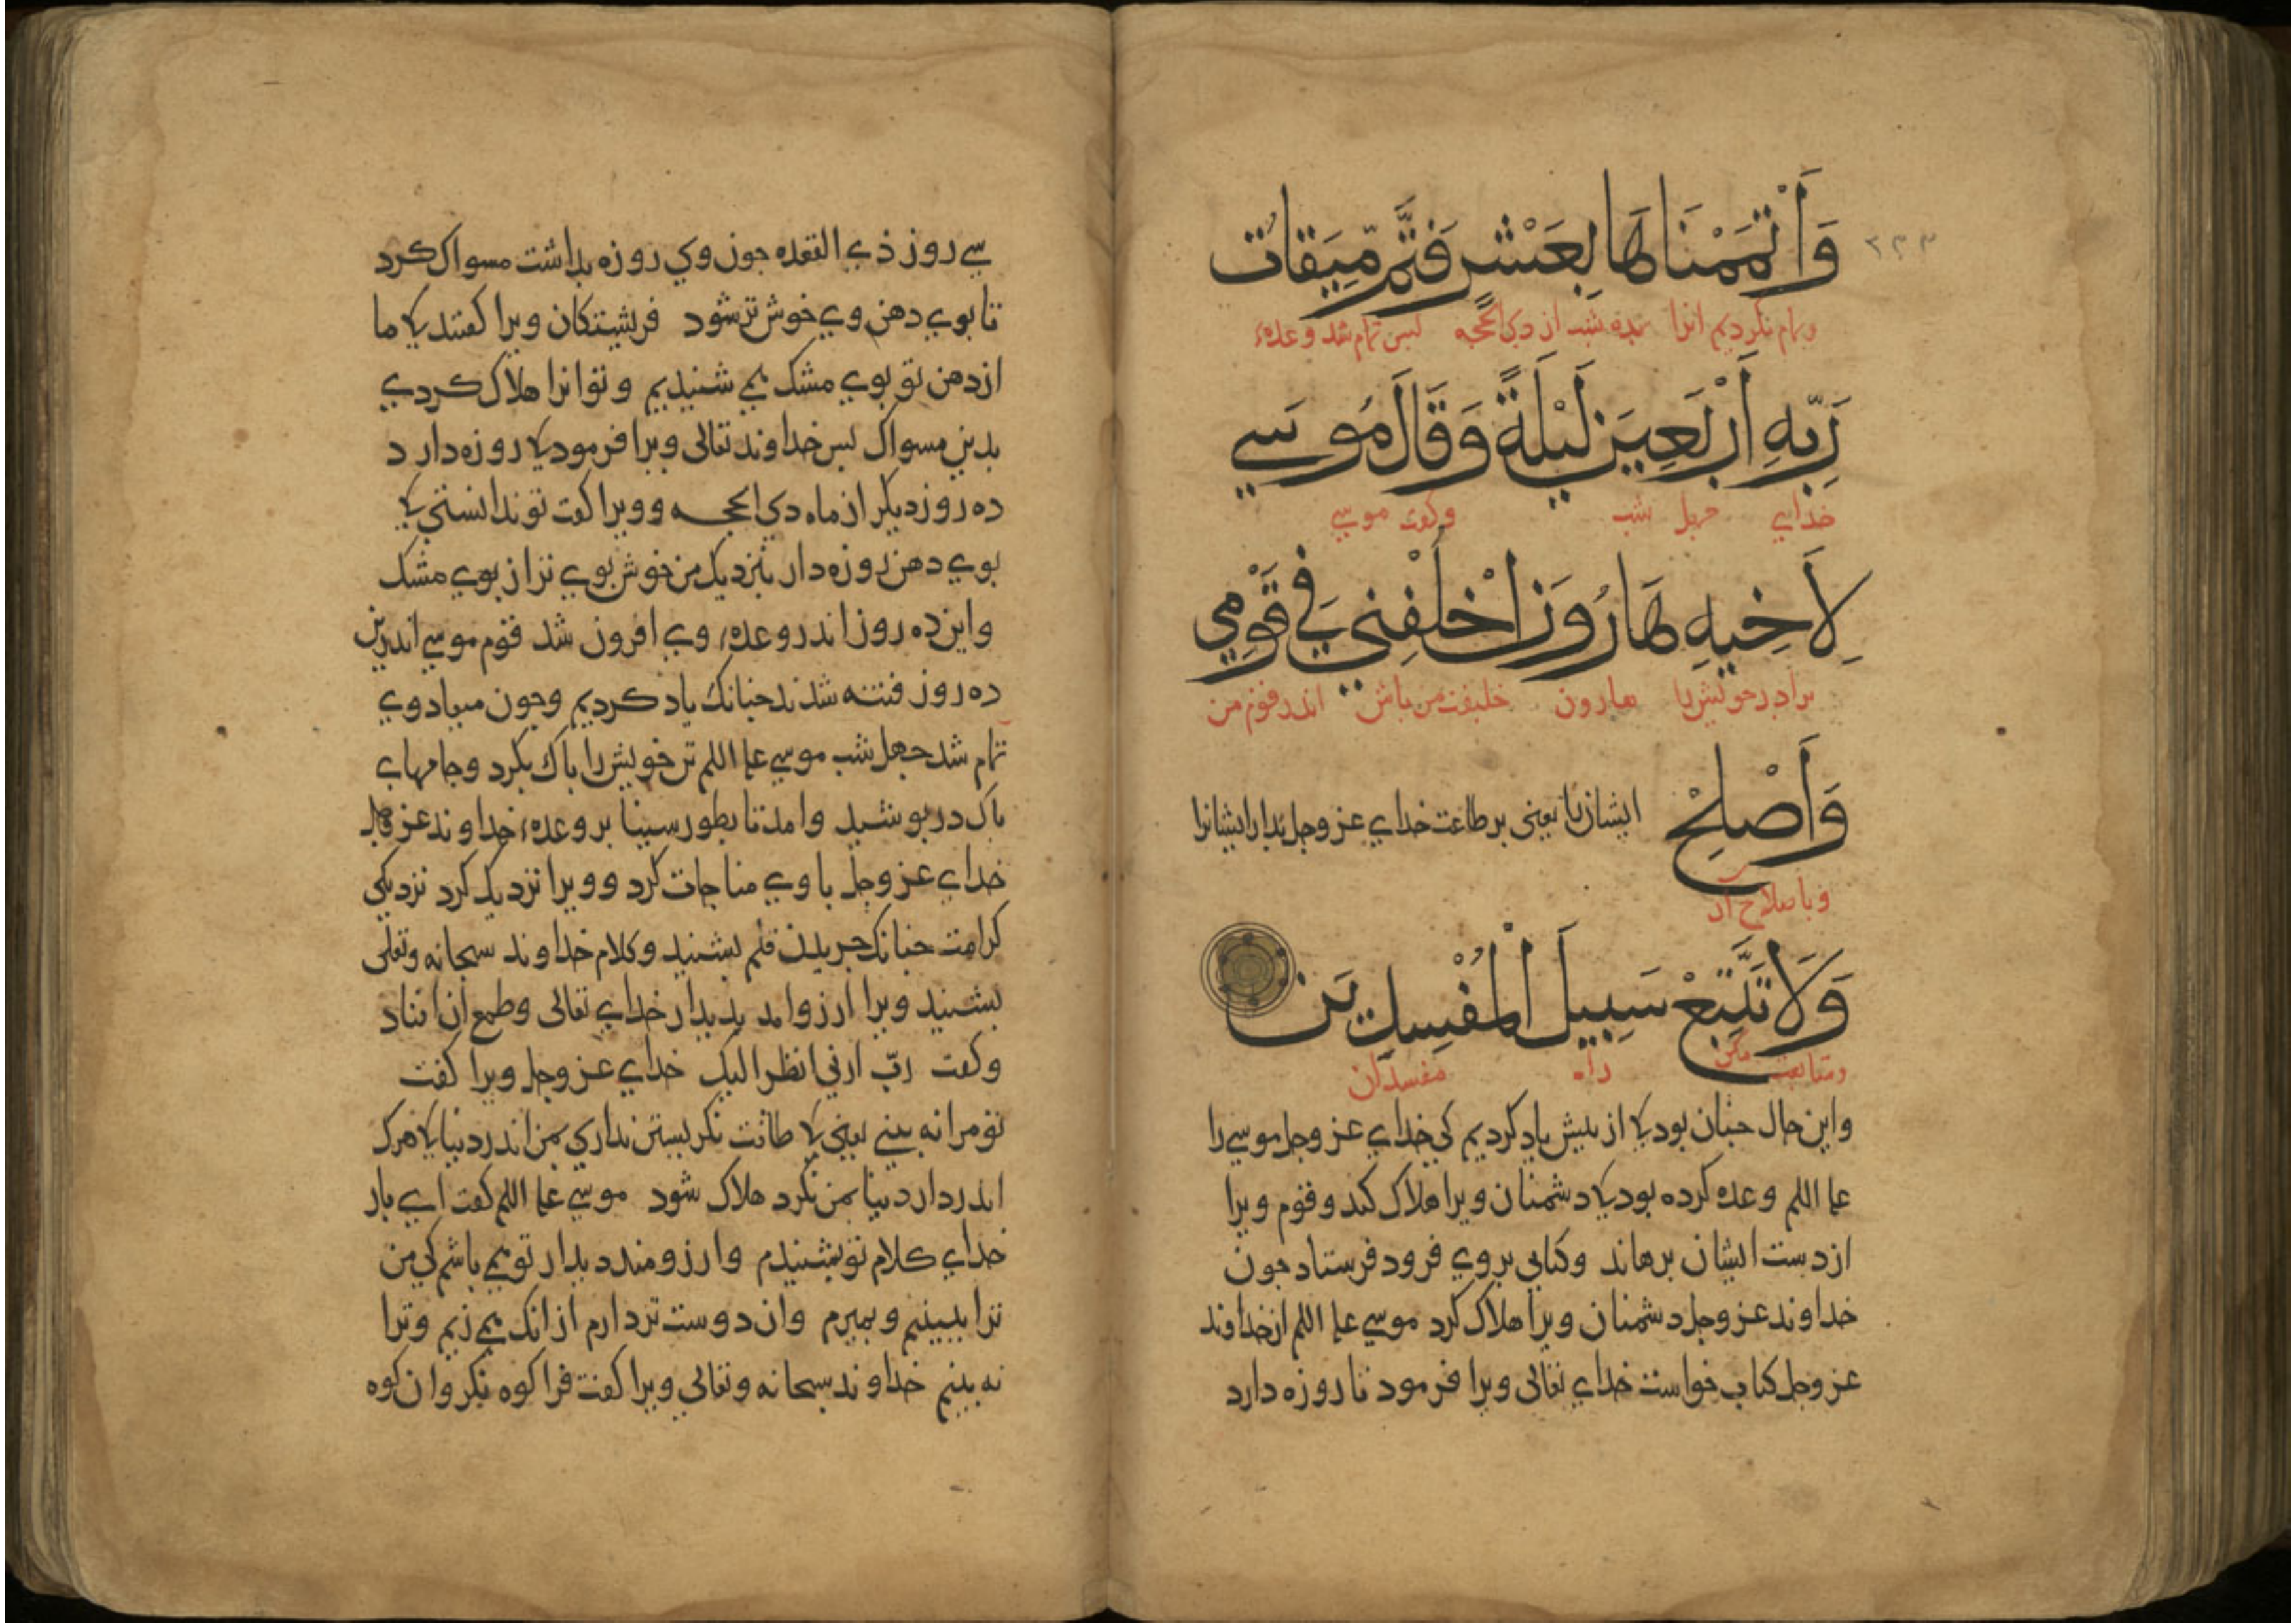 ٢٣٣
وَأَتْمَمْنَاهَا بِعَشْرٍ فَتَمَّ مِيقَاتُ
وتمام بكرديم انرا بده شب از ذي الحجه بس تمام شد وعدهٔ
رَبِّهِ أَرْبَعِينَ لَيْلَةً وَقَالَ مُوسَى
خداي جهل شب وكفت موسي
لِأَخِيهِ هَارُونَ اخْلُفْنِي فِي قَوْمِي
برادر خويش را هارون خليفت من باش اندر قوم من
وَأَصْلِحْ ايشان را يعني بر طاعت خداي عز وجل بدار ايشانرا
وباصلاح ار
وَلَا تَتَّبِعْ سَبِيلَ الْمُفْسِدِينَ
ومتابعت مكن راه مفسدان
واين حال جنان بود كا از بيش ياد كرديم كي خداي عز وجل موسي را
عليه السلم وعده كرده بود كا دشمنان ويرا هلاك كند وقوم ويرا
از دست ايشان برهاند وكتابي بروي فرود فرستاد جون
خداوند عز وجل دشمنان ويرا هلاك كرد موسي عليه السلم از خداوند
عز وجل كتاب خواست خداي تعالى ويرا فرمود تا روزه دارد
سي روز ذي القعده جون وي روزه بداشت مسواك كرد
تا بوي دهن وي خوش تر شود فريشتكان ويرا كفتند كا ما
از دهن تو بوي مشك مي شنيديم وتو انرا هلاك كردي
بدين مسواك بس خداوند تعالى ويرا فرمود كا روزه دارد
ده روز ديكر از ماه ذي الحجه وويرا كفت تو ندانستي كا
بوي دهن روزه دار بنزديك من خوش بوي تر از بوي مشك
واين ده روز اندر وعدهٔ وي افزون شد قوم موسي اندرين
ده روز فتنه شدند جنانك ياد كرديم وجون ميعاد وي
تمام شد جهل شب موسي عليه السلم تن خويش را باك بكرد وجامهاي
باك در بوشيد وامد تا بطور سينا بر وعدهٔ خداوند عز وجل
خداي عز وجل با وي مناجات كرد وويرا نزديك كرد نزديكي
كرامت جنانك جريدن قلم بشنيد وكلام خداوند سبحانه وتعلى
بشنيد ويرا ارزو امد بديدار خداي تعالى وطمع ان افتاد
وكفت ربّ ارني انظر اليك خداي عز وجل ويرا كفت
تو مرا نه بيني يعني كا طاقت نكريستن نداري بمن اندر دنيا كا هرك
اندر دار دنيا بمن نكرد هلاك شود موسي عليه السلم كفت اي بار
خداي كلام تو بشنيدم وارزومند ديدار تو مي باشم كي من
ترا ببينم وبميرم وان دوست تر دارم از انك مي زيم وترا
نه بينم خداوند سبحانه وتعالي ويرا كفت فرا كوه نكر وان كوه